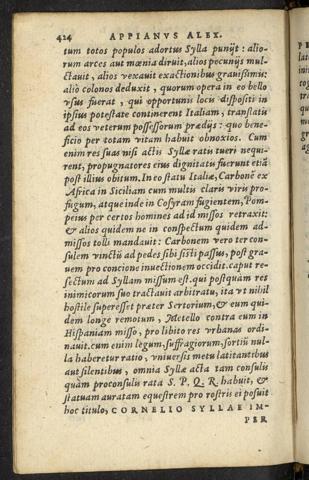 424 APPIANVS ALEX.
tum totos populos adortus Sylla punijt: alio-
rum arces aut mœnia diruit, alios pecunijs mul-
ctauit, alios vexauit exactionibus grauissimis:
alió colonos deduxit, quorum opera in eo bello
vsus fuerat, qui opportunis locis dispositi in
ipsius potestate continerent Italiam, translatis
ad eos veterum possessorum prædijs: quo bene-
ficio per totam vitam habuit obnoxios. Cum
enim res suas nisi actis Syllæ ratis tueri nequi-
rent, propugnatores eius dignitatis fuerunt etiā
post illius obitum. In eo statu Italiæ, Carbonē ex
Africa in Siciliam cum multis claris viris pro-
fugum, atque inde in Cosyram fugientem, Pom-
peius per certos homines ad id missos retraxit:
& alios quidem ne in conspectum quidem ad-
missos tolli mandauit: Carbonem vero ter con-
sulem vinctū ad pedes sibi sisti passus, post gra-
uem pro concione inuectionem occidit. caput re-
sectum ad Syllam missum est. qui postquam res
inimicorum suo tractauit arbitratu, ita vt nihil
hostile superesset præter Sertorium, & eum qui-
dem longe remotum, Metello contra eum in
Hispaniam misso, pro libito res vrbanas ordi-
nauit. cum enim legum, suffragiorum, sortiū nul-
la haberetur ratio, vniuersis metu latitantibus
aut silentibus, omnia Syllæ acta tam consulis
quàm proconsulis rata S. P. Q. R. habuit, &
statuam auratam equestrem pro rostris ei posuit
hoc titulo, CORNELIO SYLLAE IM-
PER